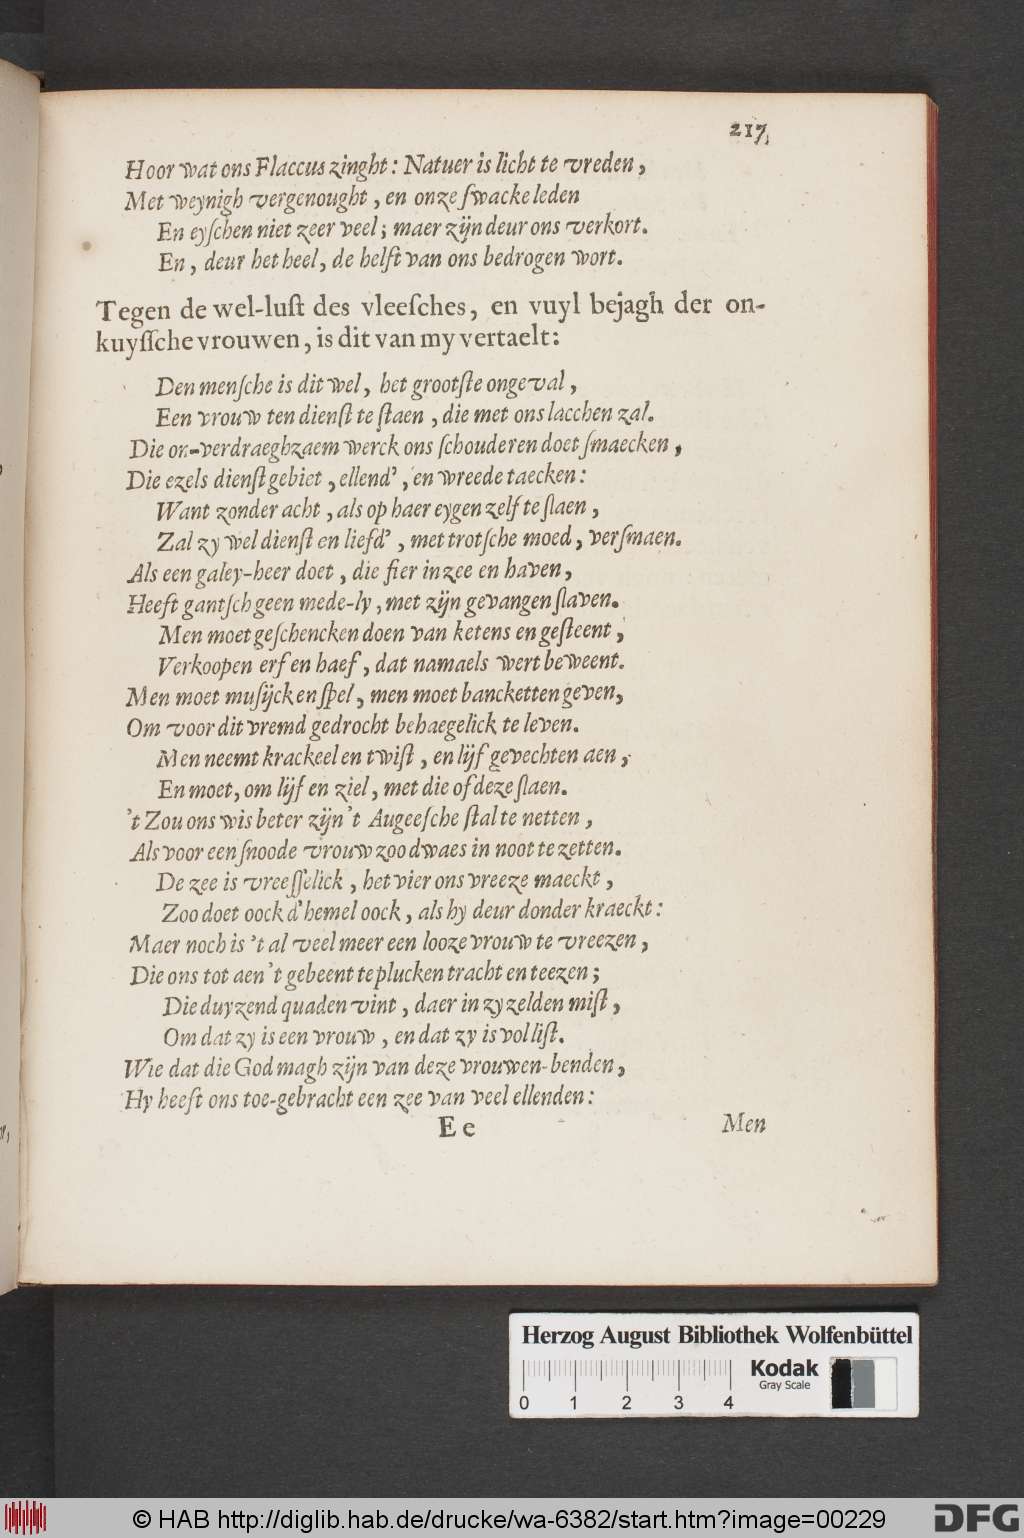 217,
Hoor wat ons Flaccus zinght: Natuer is licht te vreden,
Met weynigh vergenought, en onze ſwacke leden
En eyſchen niet zeer veel; maer zijn deur ons verkort.
En, deur het heel, de helft van ons bedrogen wort.
Tegen de wel-luſt des vleeſches, en vuyl bejagh der on-
kuyſſche vrouwen, is dit van my vertaelt:
Den menſche is dit wel, het grootſte ongeval,
Een vrouw ten dienſt te ſtaen, die met ons lacchen zal.
Die on-verdraeghzaem werck ons ſchouderen doet ſmaecken,
Die ezels dienſt gebiet, ellend', en wreede taecken:
Want zonder acht, als op haer eygen zelf te ſlaen,
Zal zy wel dienſt en liefd', met trotſche moed, verſmaen.
Als een galey-heer doet, die fier in zee en haven,
Heeft gantſch geen mede-ly, met zijn gevangen ſlaven.
Men moet geſchencken doen van ketens en geſteent,
Verkoopen erf en haef, dat namaels wert beweent.
Men moet muſijck en ſpel, men moet bancketten geven,
Om voor dit vremd gedrocht behaegelick te leven.
Men neemt krackeel en twiſt, en lijf gevechten aen,
En moet, om lijf en ziel, met die of deze ſlaen.
't Zou ons wis beter zijn 't Augeeſche ſtal te netten,
Als voor een ſnoode vrouw zoo dwaes in noot te zetten.
De zee is vreeſſelick, het vier ons vreeze maeckt,
Zoo doet oock d' hemel oock, als hy deur donder kraeckt:
Maer noch is 't al veel meer een looze vrouw te vreezen,
Die ons tot aen 't gebeent te plucken tracht en teezen;
Die duyzend quaden vint, daer in zy zelden miſt,
Om dat zy is een vrouw, en dat zy is vol liſt.
Wie dat die God magh zijn van deze vrouwen-benden,
Hy heeft ons toe-gebracht een zee van veel ellenden:
E e
Men
Herzog August Bibliothek Wolfenbüttel
Kodak
Gray Scale
0 1 2 3 4
© HAB http://diglib.hab.de/drucke/wa-6382/start.htm?image=00229
DFG